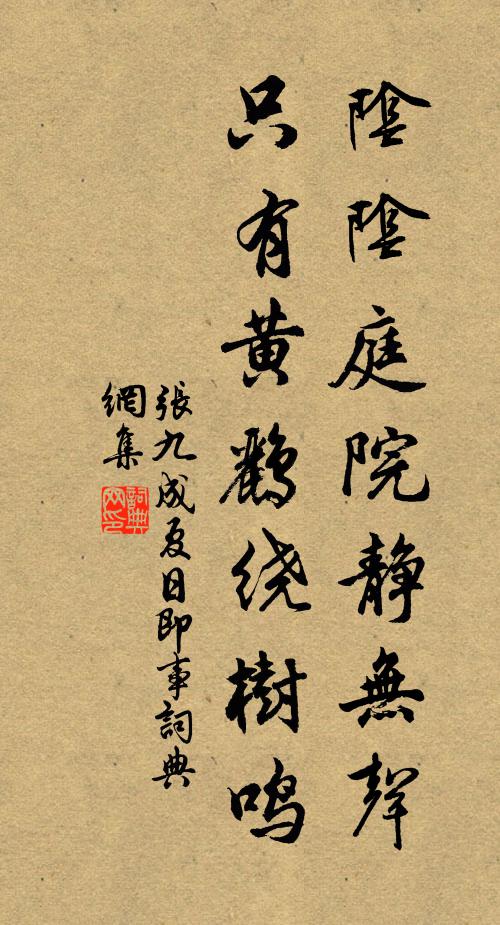 陰陰庭院静無聲
只有黄鸝绕樹鸣
張九成夏日即事詞典
網集
詞典
网印